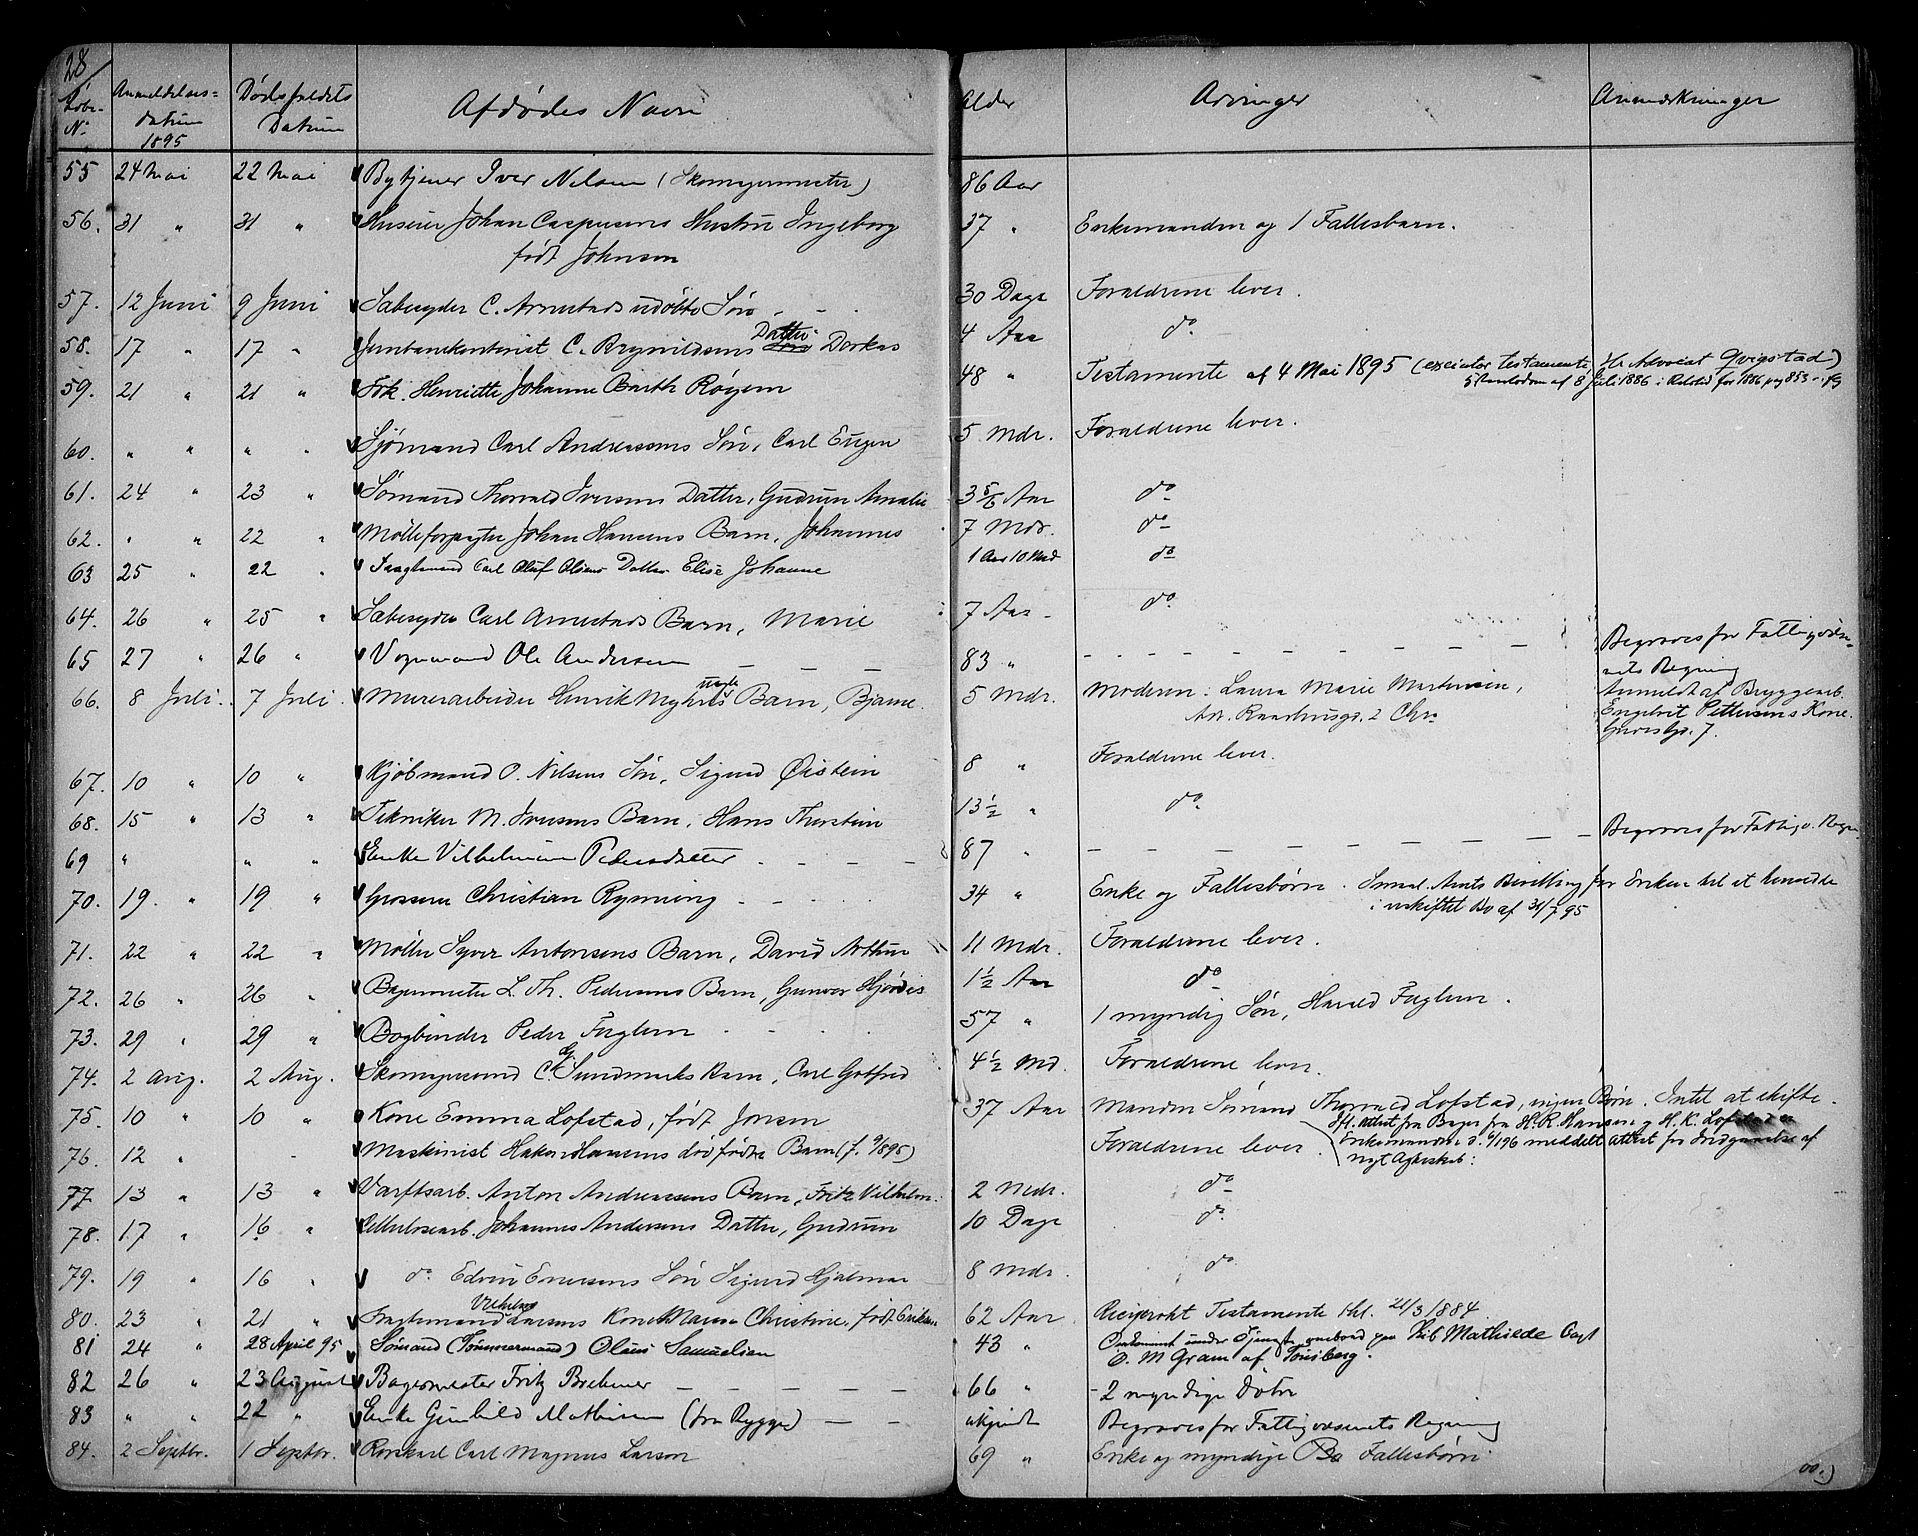 28
Løbe- Anmeldelses- Dødsfaldets Afdødes Navn Alder Arvinger Anmærkninger
No datum Datum
1895
55 24 Mai 22 Mai Bytjener Iver Nilsen (Skomagermester) 86 Aar
56. 31 " 31 " Johan Caspersens Hustru Ingeborg 37 " Enkemanden og 1 Fællesbarn.
født Johnsen
57. 12 Juni 9 Juni Sæbesyder C. Arnestads udøbte Søn 30 Dage Forældrene lever.
58. 17 " 17 " Jernbanekontorist C. Brynildsens Datter Dorkas 4 Aar do
59. 21 " 21 " Frk. Henriette Johanne Barth Røyem 48 " Testamente af 4 Mai 1895 (executor testamente Hr Advocat Qvigstad)
af 8 Juli 1886 i for 1886 pag 853
60. " " " " Sjømand Carl Andreassens Søn, Carl Eugen 5 Mdr. Forældrene lever.
61. 24 " 23 " Sømand Thorvald Iversens Datter, Gudrun Amalie 3 5/6 Aar do
62. " " 22 " Mølleforpagter Johan Hansens Barn, Johannes 7 Mdr. do
63 25 " 22 " Carl Oluf Olsens Datter Elise Johanne 1 Aar 10 Md do
64. 26 " 25 " Sæbesyder Carl Arnestads Barn, Marie 7 Aar do
65 27 " 26 " Vognmand Ole Andersen 83 " Begraves for Fattigvæse-
nets Regning
66. 8 Juli. 7 Juli. Murerarbeider Henrik uægte Barn, Bjarne. 5 Mdr. Moderen: Laura Marie Martensen, Anmeldt af Bryggearb.
Adr. Raadhusgd. 2 Chra Engebret Pettersens Kone.
7.
67. 10 " 10 " Kjøbmand O. Nilsens Søn, Sigurd Øistein 8 " Forældrene lever.
68. 15 " 13 " Tekniker M. Iversens Barn, Hans Thorstein 13 1/2 " do
69 " " " Enke Vilhelmine Pedersdatter 87 " Begraves for Fattigv. Regn
70. 19. " 19 " Grosserer Christian Rynning 34 " Enke og Fællesbørn. Smaal. Amts Bevilling for Enken til at hensidde
i uskiftet Bo af 31/7 95
71. 22 " 22 " Møller Syver Antonsens Barn, David Arthur 11 Mdr. Forældrene lever.
72. 26 " 26 " Bagermester L. Th. Pedersens Barn, Gunvor Hjørdis 1 1/2 Aar do
73. 29 " 29 " Bogbinder Peder Fuglem 57 " 1 myndig Søn, Harald Fuglem.
74. 2 Aug. 2 Aug. Skomagersvend C. G. Sundmarks Barn, Carl Gotfred 4 1/2 Md. Forældrene lever.
75. 10 " 10 " Kone Emma Lofstad, født Jonsen 37 Aar Manden Sømand Thorvald Lofstad, ingen Børn. Intet at skifte.
Ifl. Attest fra Bager H. R. Hansen og H. K. Lofstad er
76. 12 " Maskinist Hakon Hansens dødfødte Barn (f. 9/8 95) Forældrene lever. Enkemanden d. meddelt Attest for Indgaaelse af
nyt Ægteskab:
77. 13 " 13 " Værftsarb. Anton Andreassens Barn, Fritz Vilhelm. 2 Mdr. do
78. 17 " 16 " Cellulosearb. Johannes Andersens Datter, Gudrun 10 Dage do
79. 19 " 16 " do Edvin Enersens Søn Sigurd Hjalmar 8 Mdr. do
80. 23 " 21 " Vilhelm Larsens Kone Maria Christine, født Eriksen 62 Aar Reciprokt Testamente dat. 21/3 1884
81 24 " 28 April 95 Sømand (Tømmermand) Olaus Samuelsen 43 " Omkommet under Tjeneste ombord paa Skib Mathilde Capt
O. M Gram af Tønsberg.
82 26 " 23 August Bagermester Fritz Brebmer 66 " 2 myndige Døtre
83 " " 22 " Enke Gunhild Mathisen (fra Rygge) ukjendt Begraves for Fattigvæsenets Regning
84. 2 Septbr. 1 Septbr. Rorskarl Carl Magnus Larson 69 " Enke og myndige Fællesbørn